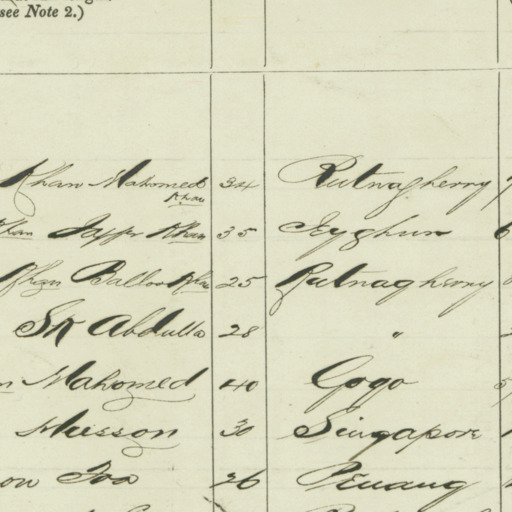 see Note 2.)
Khan Mahomed 34 Rutnagherry
Khan
Khan Jaffir Khan 35 Jeyghur
Khan Balloo Khan 25 Rutnagherry
Sk Abdulla 28 "
Mahomed 40 Gogo
Husson 30 Singapore
26 Penang